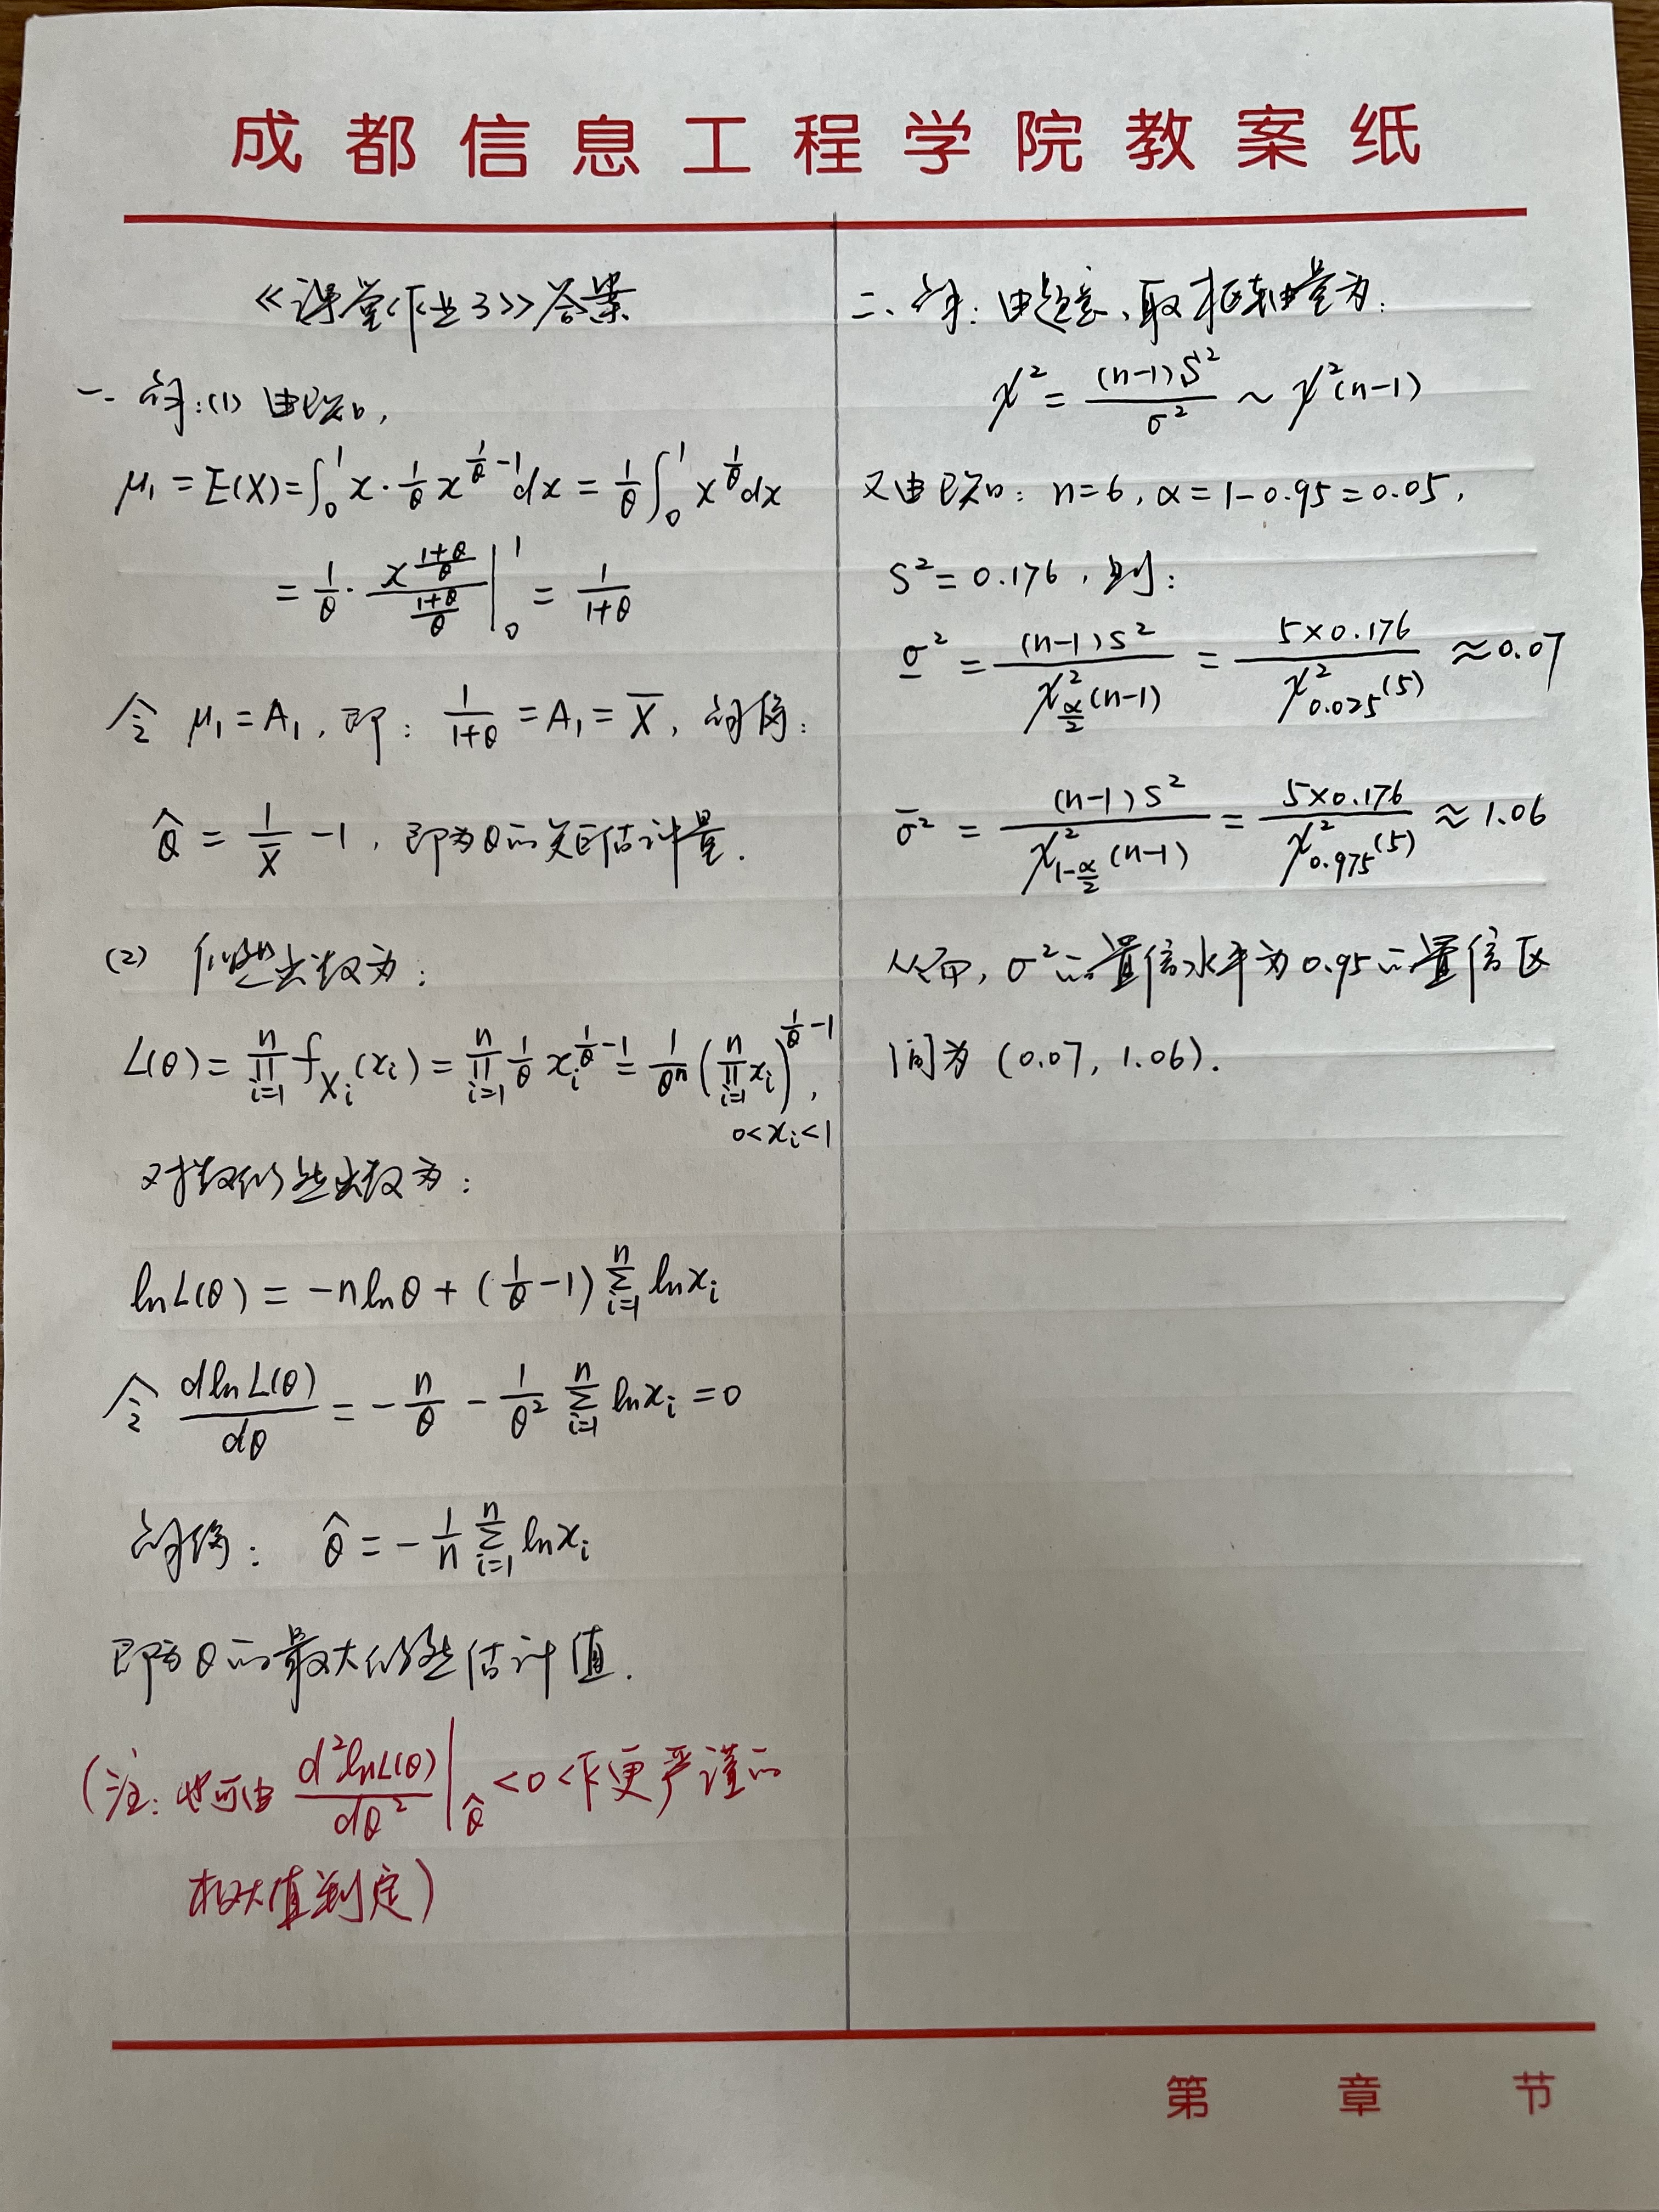 成都信息工程学院教案纸
《课堂作业3》答案
一. 解:(1) 由已知,
μ₁ = E(X) = ∫₀¹ x · 1/θ x^(1/θ - 1) dx = 1/θ ∫₀¹ x^(1/θ) dx
= 1/θ · x^((1+θ)/θ) / ((1+θ)/θ) |₀¹ = 1/(1+θ)
令 μ₁ = A₁, 即: 1/(1+θ) = A₁ = X̄, 解得:
θ̂ = 1/X̄ - 1, 即为θ的矩估计量.
(2) 似然函数为:
L(θ) = ∏ᵢ₌₁ⁿ f_Xᵢ(xᵢ) = ∏ᵢ₌₁ⁿ 1/θ xᵢ^(1/θ - 1) = 1/θⁿ (∏ᵢ₌₁ⁿ xᵢ)^(1/θ - 1),
0<xᵢ<1
对数似然函数为:
lnL(θ) = -nlnθ + (1/θ - 1) ∑ᵢ₌₁ⁿ lnxᵢ
令 dlnL(θ)/dθ = - n/θ - 1/θ² ∑ᵢ₌₁ⁿ lnxᵢ = 0
解得: θ̂ = - 1/n ∑ᵢ₌₁ⁿ lnxᵢ
即为θ的最大似然估计值.
(注: 也可由 d²lnL(θ)/dθ² |_θ̂ <0 作更严谨的
极大值判定)
二. 解: 由题意, 取枢轴量为:
χ² = (n-1)S²/σ² ~ χ²(n-1)
又由已知: n=6, α=1-0.95=0.05,
S²=0.176, 则:
σ̲² = (n-1)S² / χ²_(α/2)(n-1) = 5×0.176 / χ²_0.025(5) ≈ 0.07
σ̄² = (n-1)S² / χ²_(1-α/2)(n-1) = 5×0.176 / χ²_0.975(5) ≈ 1.06
从而, σ²的置信水平为0.95的置信区
间为 (0.07, 1.06).
第 章 节